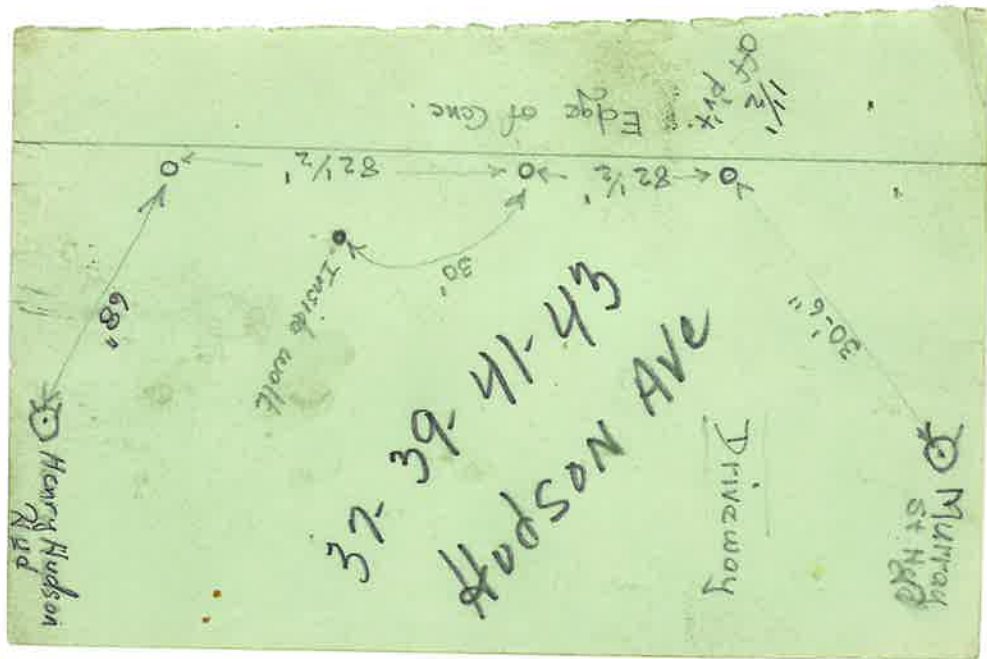 1 1/2'
off
Pv'x
Edge of Conc.
82 1/2'
82 1/2'
68"
Inside walk
30'
30'-6"
37- 39- 41- 43
Hudson Ave
Driveway
Henry Hudson
Hyd
Murray
St Hyd